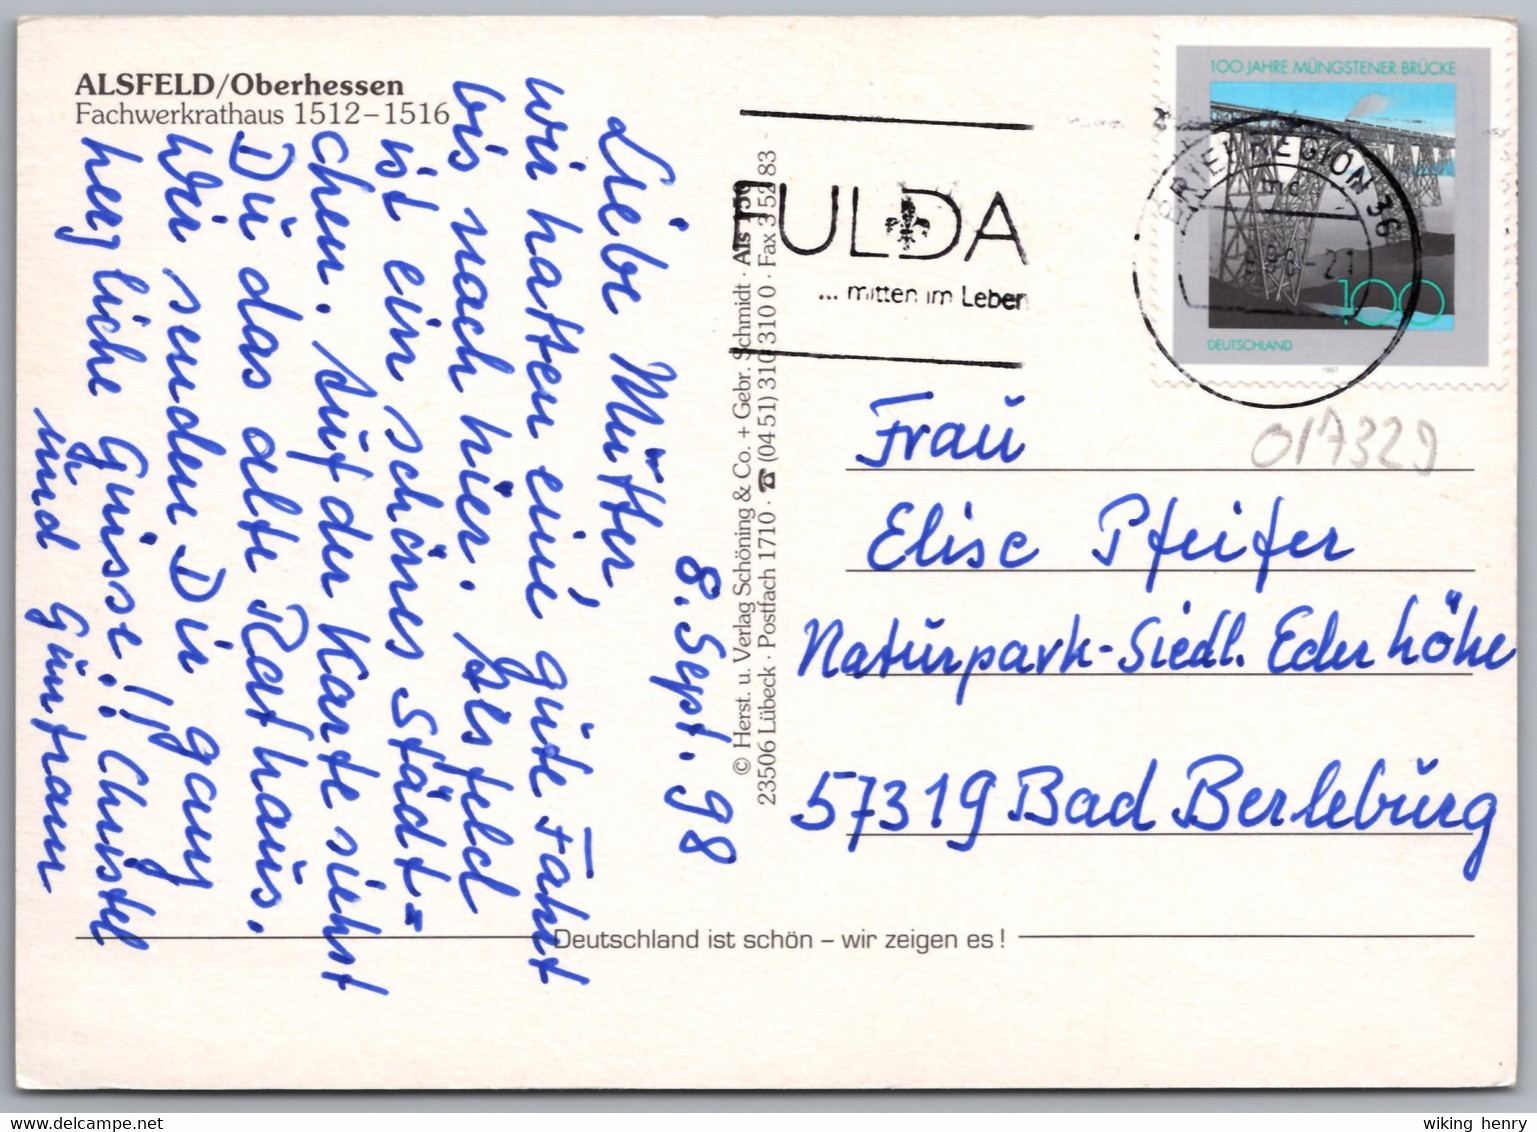 ALSFELD/Oberhessen
Fachwerkrathaus 1512–1516
8. Sept. 98
Liebe Mutter,
wir hatten eine gute Fahrt
bis nach hier. Alsfeld
ist ein schönes Städt=
chen. Auf der Karte siehst
Du das alte Rathaus.
Wir senden Dir ganz
herzliche Grüsse!! Christel
und Guntram
© Herst. u. Verlag Schöning & Co. + Gebr. Schmidt · Als
23506 Lübeck · Postfach 1710 · ☎ (04 51) 310 310 0 · Fax 3 52 83
FULDA
... mitten im Leben
BRIEFREGION 36
100 JAHRE MÜNGSTENER BRÜCKE
100
DEUTSCHLAND
1997
017329
Frau
Elise Pfeifer
Naturpark-Siedl. Ederhöhe
57319 Bad Berleburg
Deutschland ist schön – wir zeigen es!
wiking henry